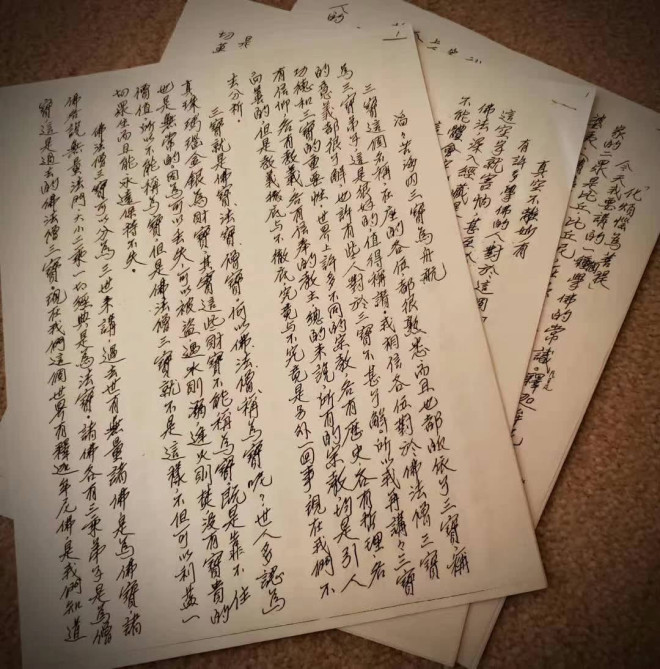 滔々苦海內三寶為舟航
三寶這個名稱,在座的各位都很熟悉而且也都皈依了三寶,稱
為三寶弟子這是很好的,值得稱讚。我相信各位對於佛法僧三寶
的意義都很了解,也許有些人對於三寶不甚了解所以我再講々三寶
功德和三寶的重要性。世界上許多不同的宗教,各有歷史、各有哲理、各
有信仰、各有教義、各有信奉的教主總的來說所有的宗教均是引人
向善的但是教義徹底与不徹底究竟与不究竟是另外一回事現在我們不
去分析。
三寶就是佛寶、法寶、僧寶、何以佛法僧稱為寶呢?世人多認為
真珠瑪瑙金銀為財寶,其實這些財寶不能稱為寶,既是靠不住
也是無常的因為可以丟失,可以被盜,遇水則漏,逢火則焚,沒有寶貴的
價值所以不能稱為寶但是佛法僧三寶就不是這樣,不但可以利益一
切眾生而且能永遠保持不失。
佛法僧三寶可以分為三世來講,過去世有無量諸佛是為佛寶,諸
佛所說無量法門,大小三乘一切經典是為法寶,諸佛各有三乘弟子是為僧
寶這是過去的佛法僧三寶,現在我們這個世界有釋迦牟尼佛,是我們知道
真空不離妙有
有許多學佛的人對於這個
這空字就害怕
佛法深入經藏
不能體會
化煩惱為菩提
今天我要講的
學佛的常講